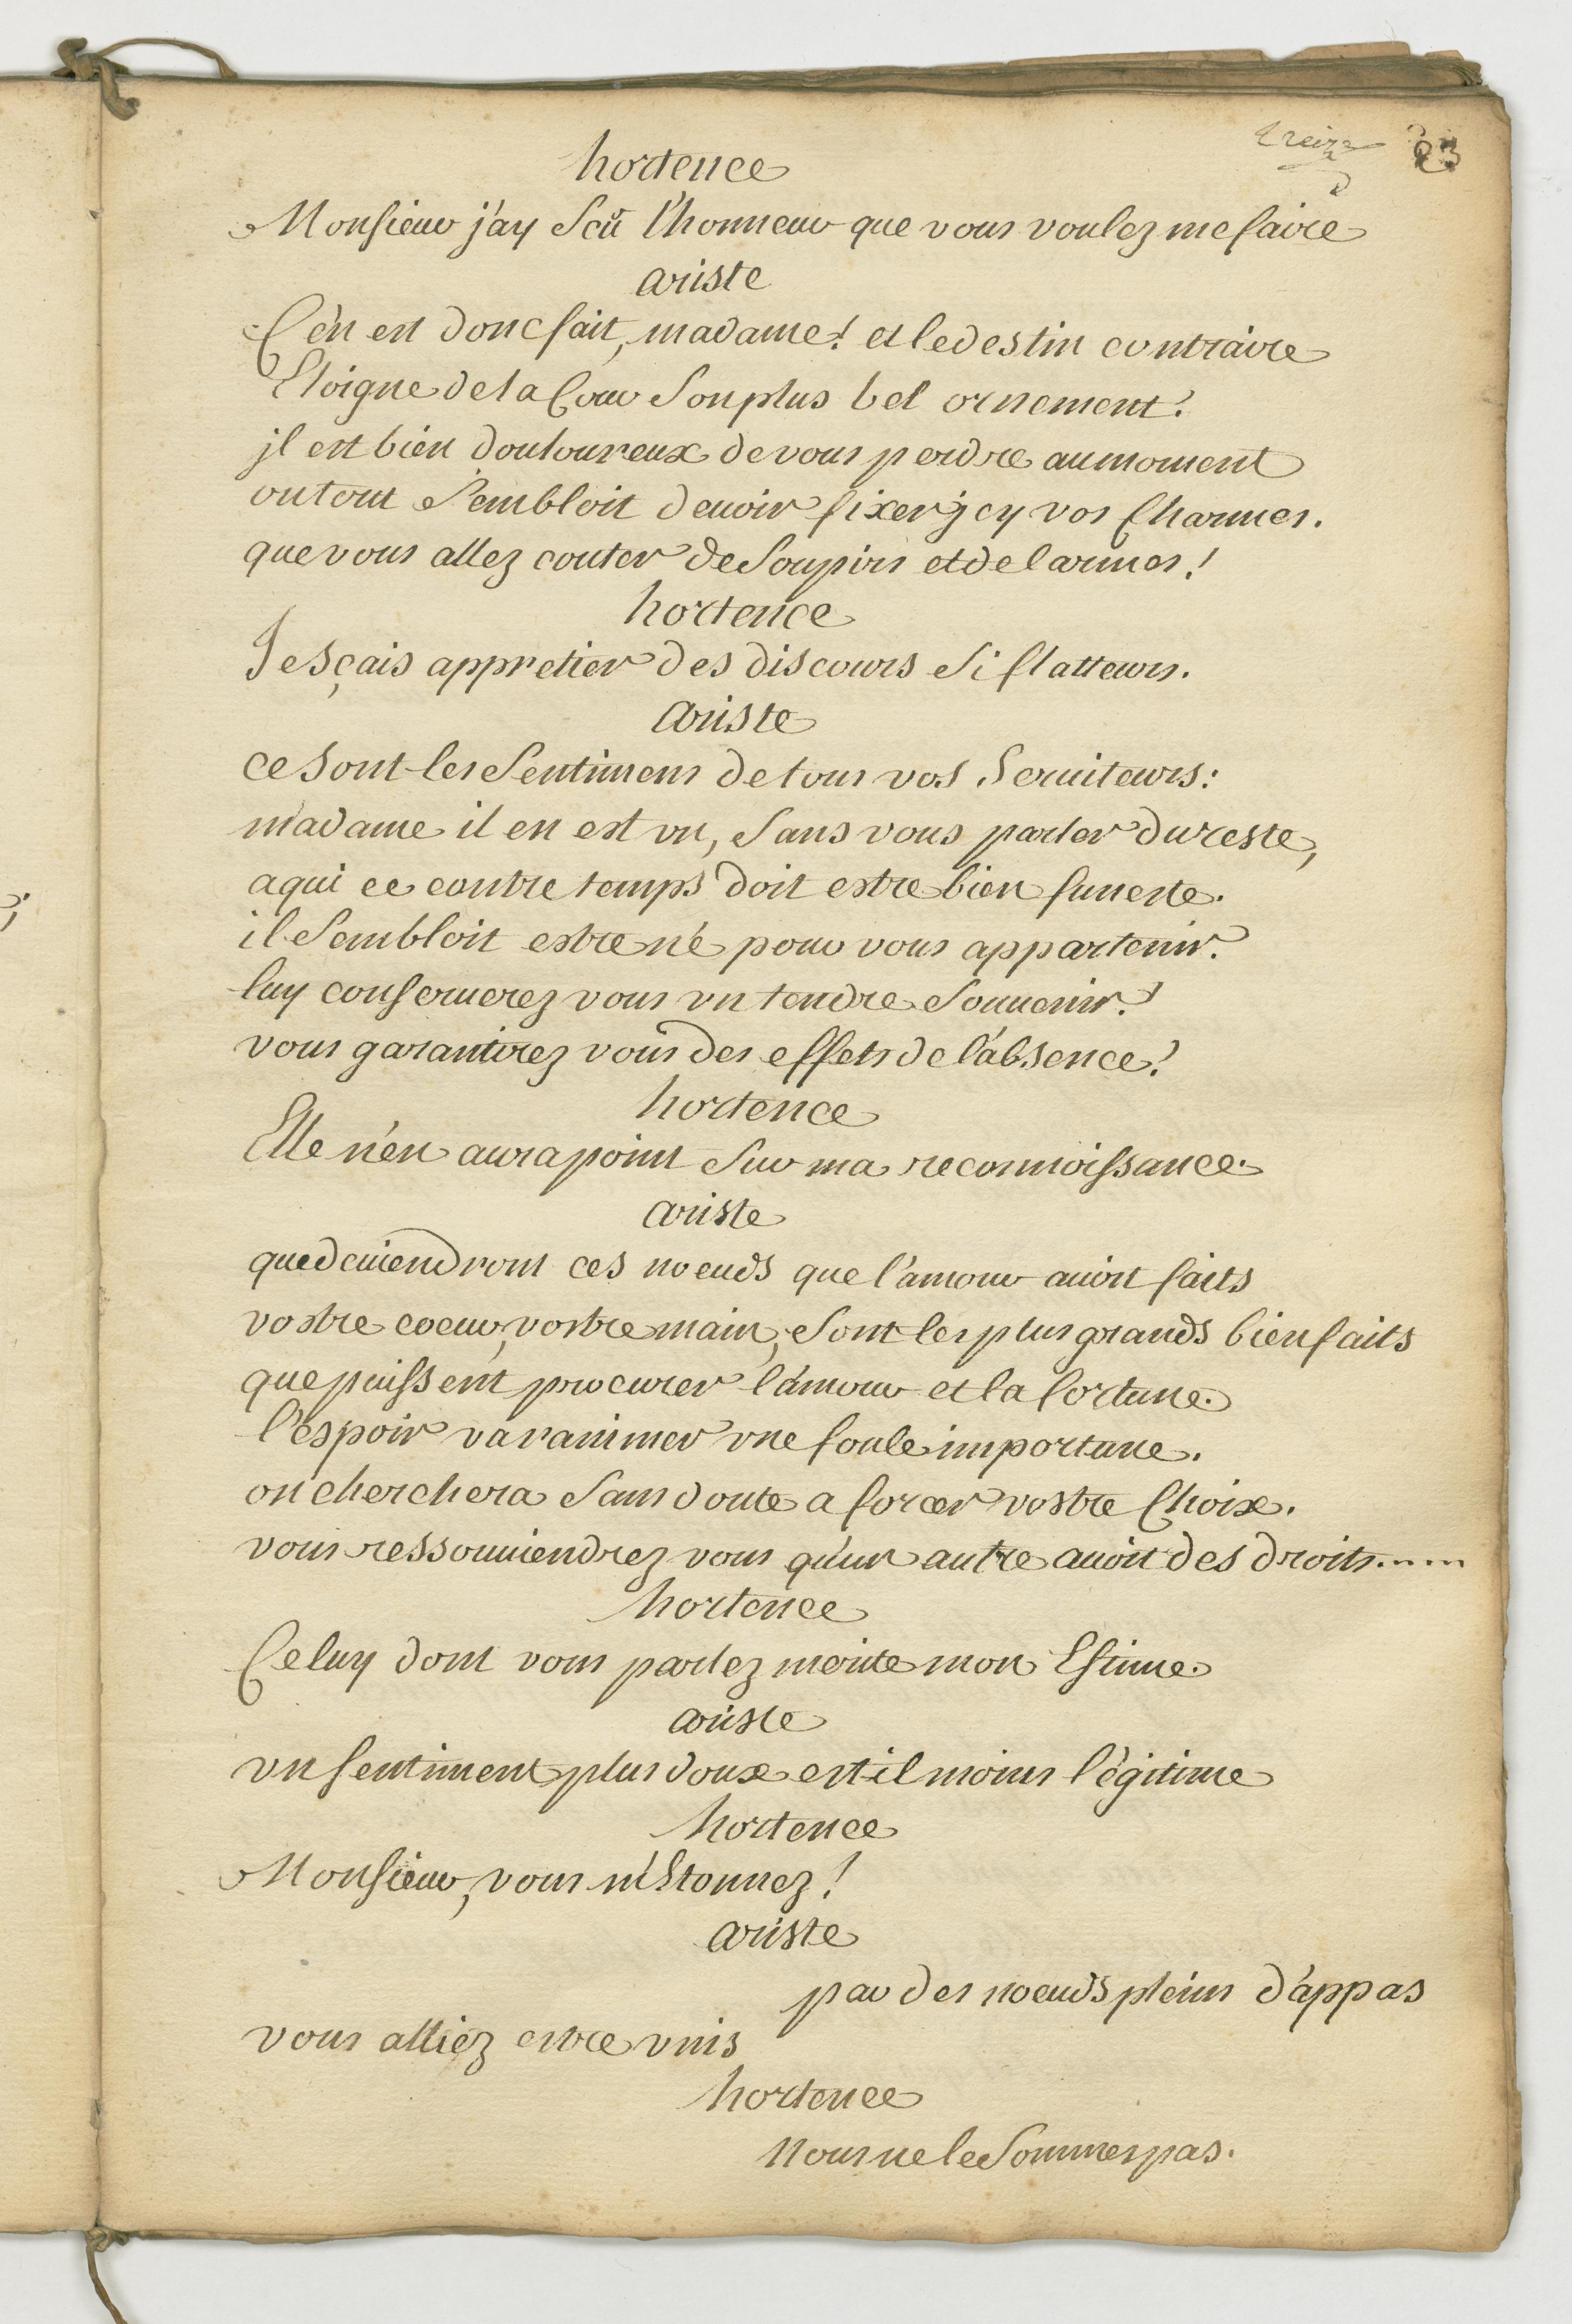 treize 23
hortence
Monsieur j'ay sçû l'honneur que vous voulez me faire
ariste
C'en est donc fait, madame! et le destin contraire
Eloigne de la Cour son plus bel ornement!
jl est bien douloureux de vous perdre au moment
ou tout sembloit deuoir fixer jcy vos Charmes.
que vous allez couter de soupirs et de larmes!
hortence
Je sçais appretier des discours si flatteurs.
ariste
ce sont les sentimens de tous vos seruiteurs:
madame il en est vn, sans vous parler du reste,
a qui ce contre temps doit estre bien funeste.
il sembloit estre né pour vous appartenir.
luy conseruerez vous vn tendre souuenir?
vous garantirez vous des effets de l'absence?
hortence
Elle n'en aura point sur ma reconnoissance.
ariste
que deuiendront ces noeuds que l'amour auoit faits
vostre coeur, vostre main, sont les plus grands bienfaits
que puissent procurer l'amour et la fortune.
l'espoir va ranimer vne foule importune.
on cherchera sans doute a forcer vostre Choix.
vous ressouuiendrez vous qu'un autre auoit des droits.....
hortence
Celuy dont vous parlez merite mon Estime.
ariste
vn sentiment plus doux est-il moins légitime
hortence
Monsieur, vous m'Etonnez!
ariste
par des noeuds pleins d'appas
vous alliez estre vnis
hortence
Nous ne le sommes pas.